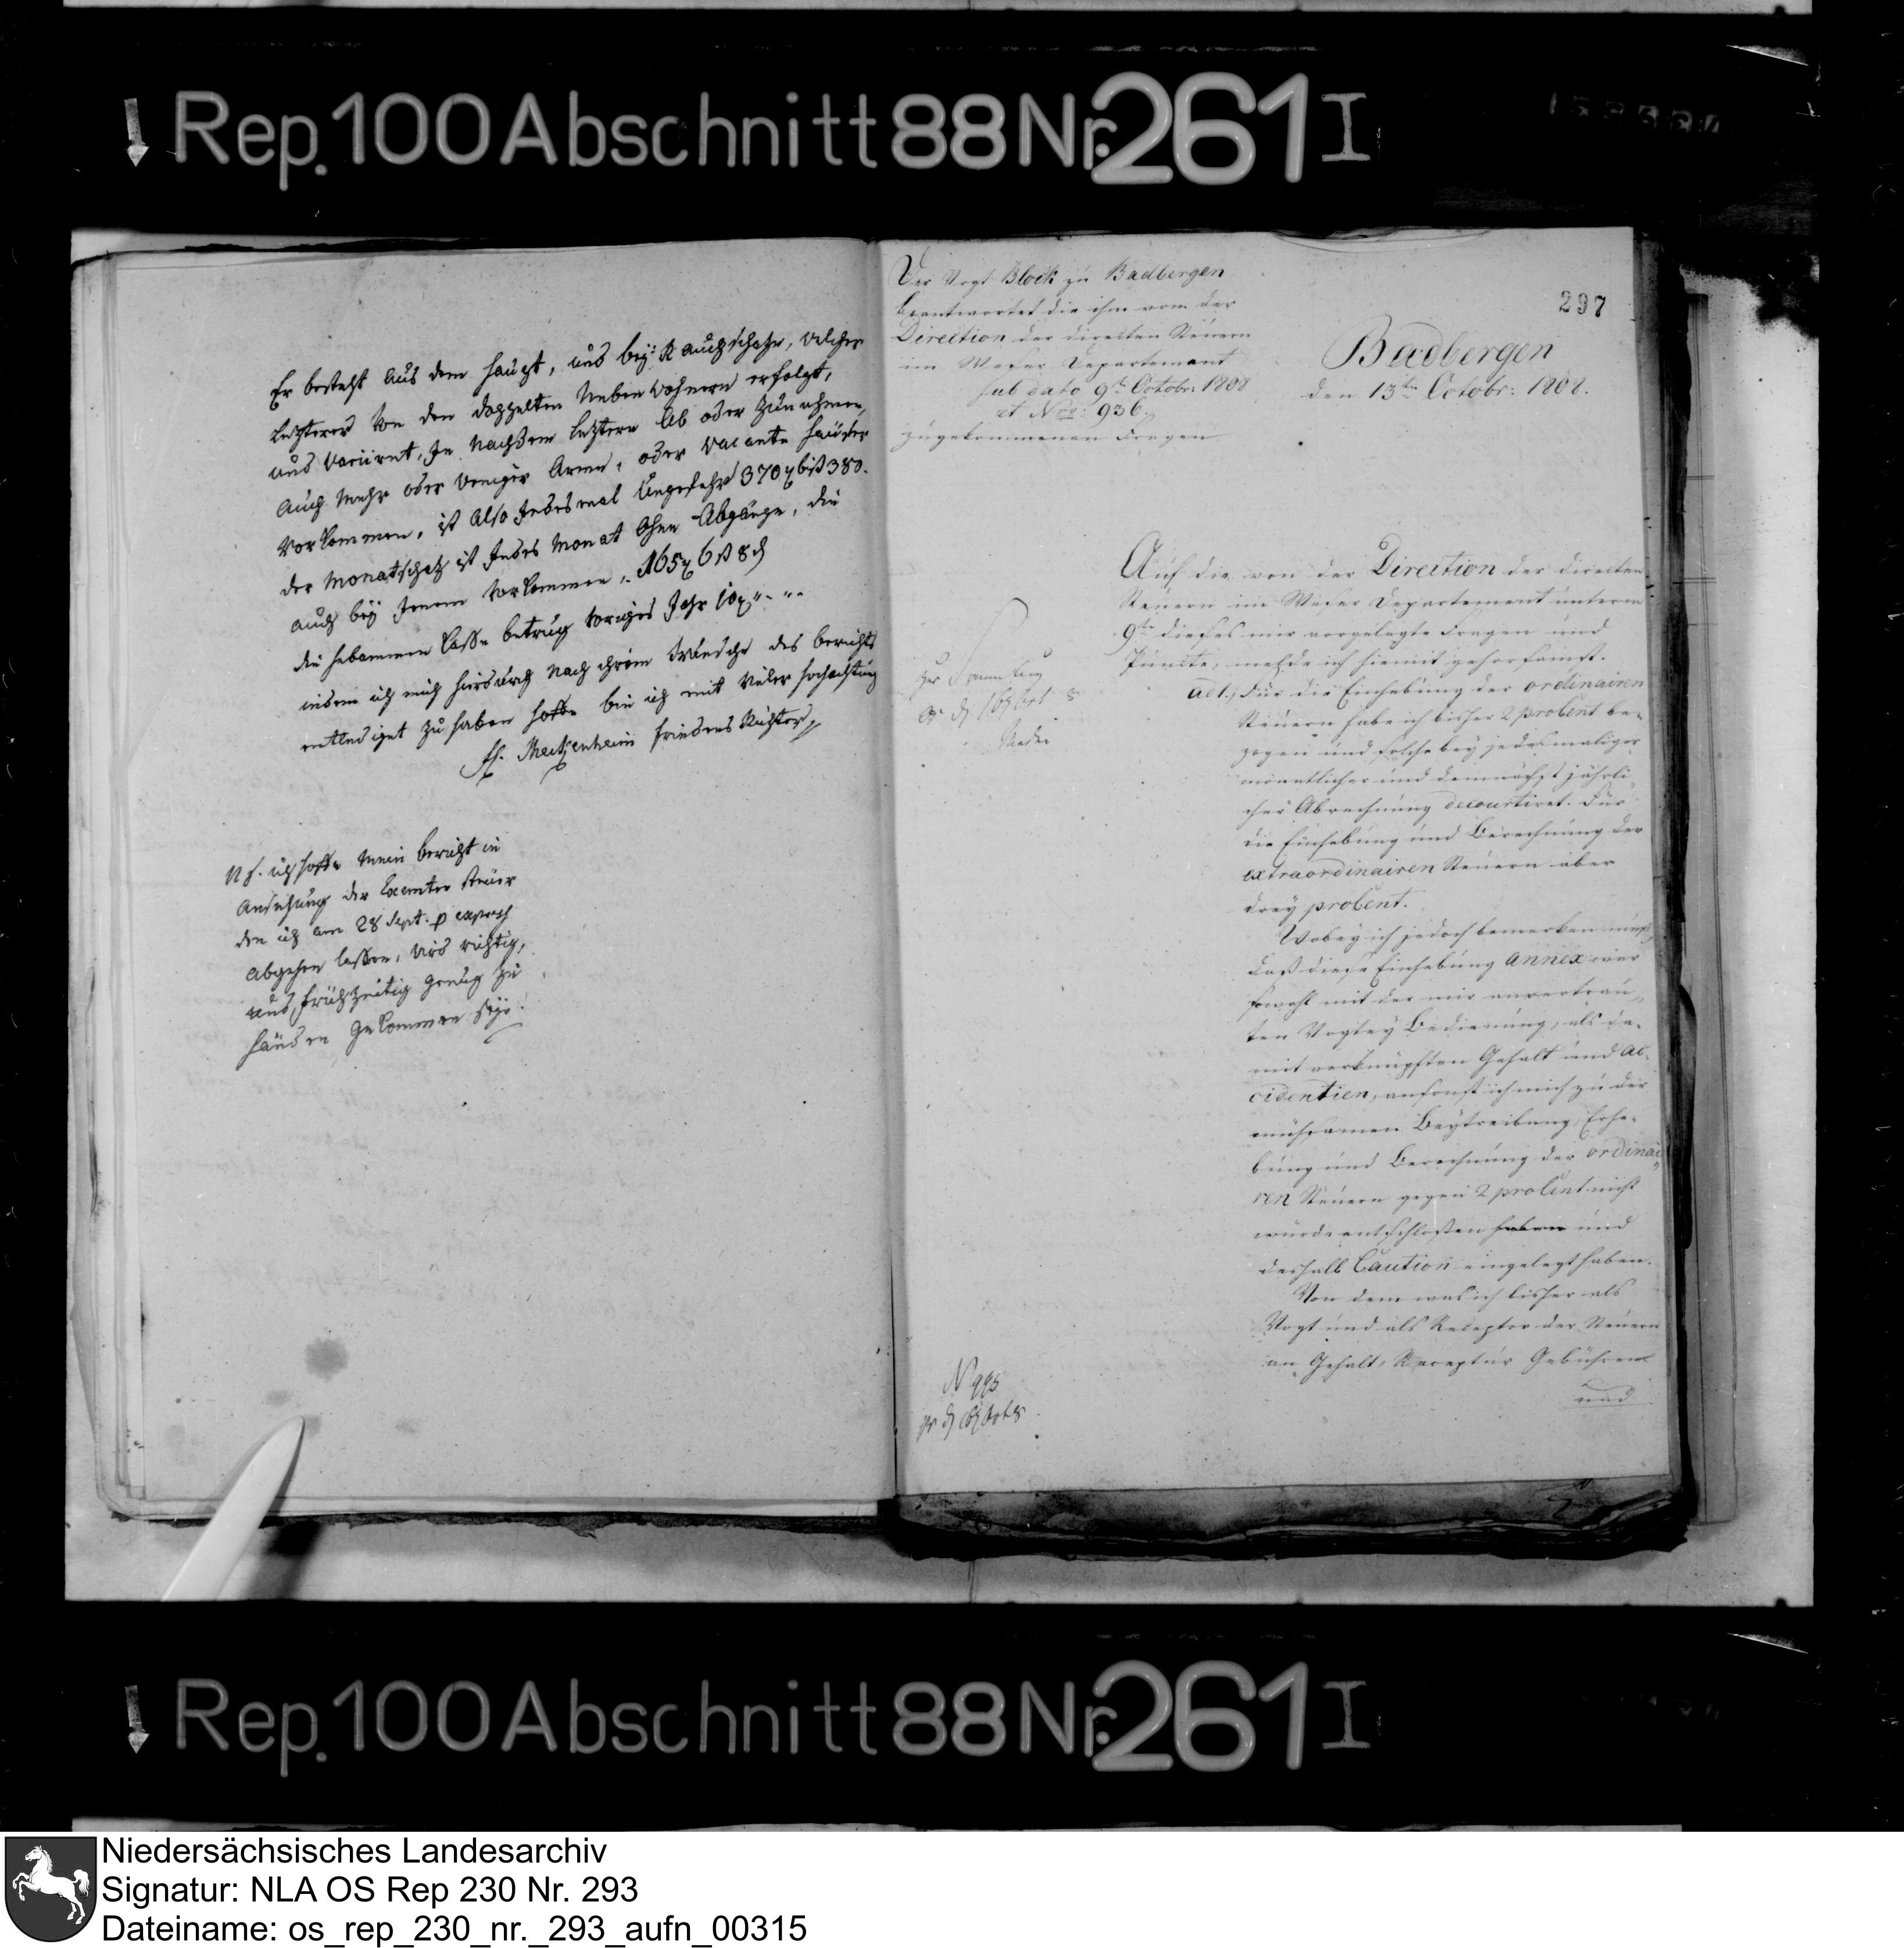 Rep. 100 Abschnitt 88 Nr. 261 I
Er besteht aus dem Haupt, und bey: Rauchschatze, welcher
letzterer von den doppelten Neben wohnern erfolgt,
und variirent, Je nachdem letztern ab oder Zunehmen,
auch mehr oder weniger arme, oder vacante Häuser
vorkommen, ist also Jedesmal Ungefehr 370 bis 380.
der Monatschatz ist Jedes Monat ohne Abgänge, die
auch bey Jenem vorkommen, 165 6 ß 8 d
die Hebammen Casse betrug voriges Jahr 10 " - "
indem ich mich hierdurch nach ihrem Wunsche des berichts
entlediget zu haben hoffe bin ich mit vieler Hochachtung
Meckenheim friedens Richter
NS. ich hoffe mein bericht in
Ansehung der Exemten steuer
den ich am 28 Sept. p express
abgehen lassen, wird richtig,
und frühzeitig genug zu
händen gekommen seyn.
Der Vogt Block zu Badbergen
beantwortet die ihm von der
Direction der directen Steuern
im Weser Departement
sub dato 9ten Octobr: 1808
et Nro: 936.
zugekommenen Fragen
297
Badbergen
den 13ten Octobr: 1808.
Auf die von der Direction der directen
Steuern im Weser Departement unterm
9ten dieses mir vorgelegte Fragen und
Puncte, melde ich hiemit gehorsamst.
ad 1., Für die Einhebung der ordinairen
Steuern habe ich bisher 2 proCent be-
zogen und solche bey jedesmaliger
monatlicher und demnächst jährli
cher Abrechnung decourtiret. Für
die Einhebung und Berechnung der
extraordinairen Steuern aber
drey proCent.
Wobey ich jedoch bemerken muß,
daß diese Einhebung annex war
sowohl mit der mir anvertrau„
ten Vogtey Bedienung, als da-
mit verknüpften Gehalt und Ac-
cidentien, ansonst ich mich zu der
mühsamen Beytreibung, Erhe-
bung und Berechnung der ordinai
ren Steuern gegen 2 proCent nicht
würde entschloßen haben und
deshalb Caution eingelegt haben.
Von dem was ich bisher als
Vogt und als Receptor der Steuern
an Gehalt, Receptur Gebühren
und
N 995
Rep. 100 Abschnitt 88 Nr. 261 I
Niedersächsisches Landesarchiv
Signatur: NLA OS Rep 230 Nr. 293
Dateiname: os_rep_230_nr._293_aufn_00315